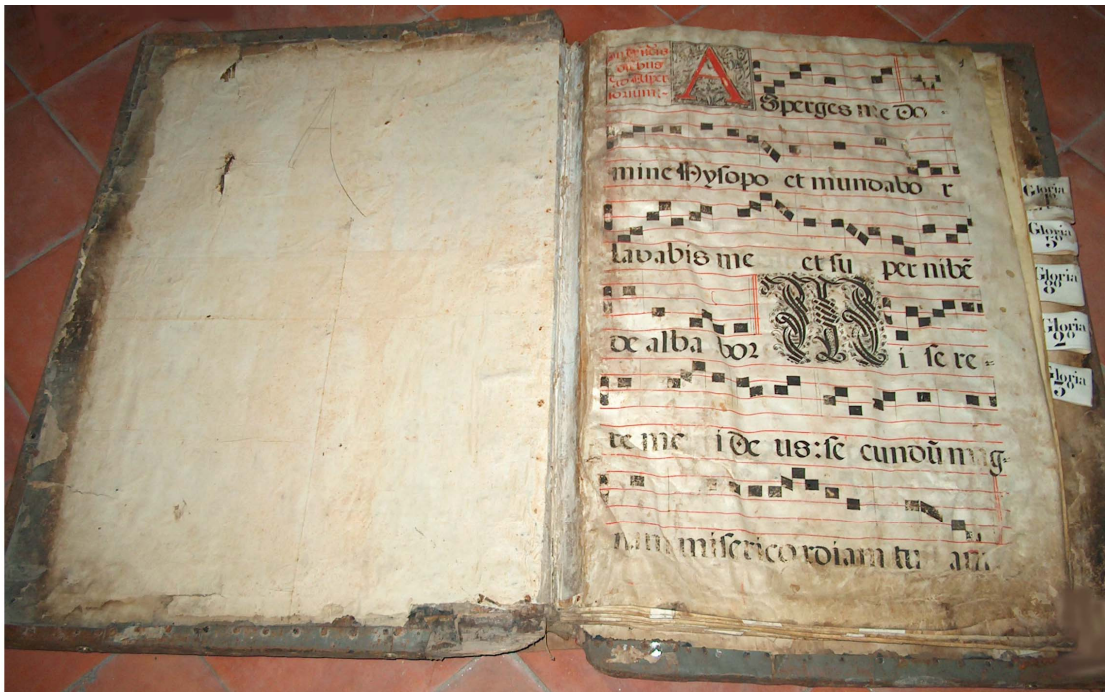 A
Sperges me Do
mine Hysopo et mundabo r
lavabis me et su per nibē
de alba bor M i se re-
re me i De us: se cundū mag-
nam misericordiam tu am
Gloria
1º
Gloria
5º
Gloria
8º
Gloria
2º
Gloria
5º